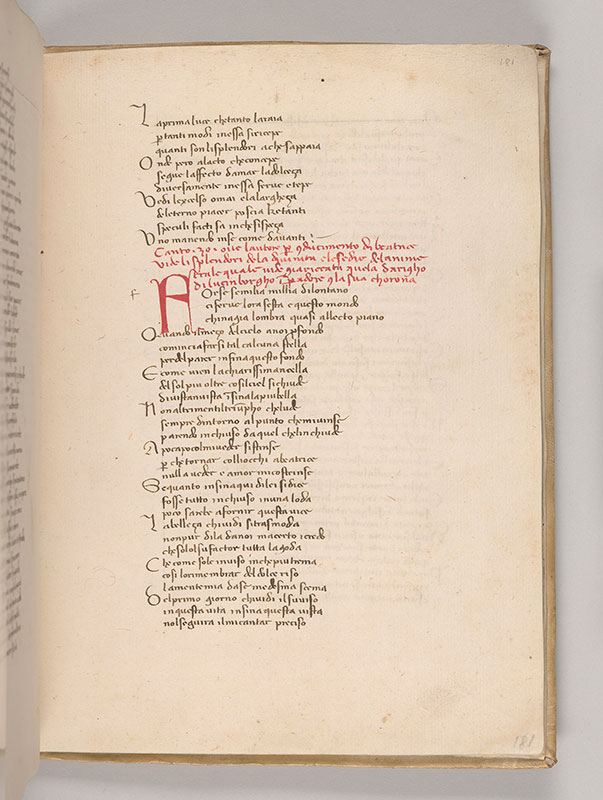 181
La prima luce che tanto la raia
per tanti modi in essa si ricepe
quanti son li splendori a che s appaia
Onde pero alacto che concepe
segue laffecto damar la dolceça
diversamente in essa ferve e tepe
Vedi lexcelso omai e la largheça
deleterno piacer poscia ke tanti
speculi facti sa in che si speça
Uno manendo in se come davanti
Canto .30. ove lautore per 9ducimento de beatrice
vide li splendori de la divinita e le sedie de lanime
ne le quale vide quella darigho
di lucinborgho imperadore 9 la sua chorona
Forse semilia millia di lontano
ci ferve lora sesta e questo mondo
china gia lombra quasi allecto piano
Quando il meço del cielo a noi profondo
comincia farsi tal calcuna stella
perde l parer infin a questo fondo
E come vien la chiarissima ancella
del sol piu oltre cosi l ciel si chiude
di vista in vista infin a la piu bella
Non altrimenti l triunpho che lude
sempre dintorno al punto che mi vinse
parendo inchiuso da quel chelinchiude
A poco a poco al mi veder si stinse
per che tornar colli occhi a beatrice
nulla vedere e amor mi costrinse
Se quanto infin a qui di lei si dice
fosse tutto inchiuso in una loda
poco sarebe a fornir questa vice
La belleça chi vidi si trasmoda
non pur di la da noi ma certo i credo
che solo l su factor tutta la goda
Che come sole in viso in che piu trema
cosi lo rimembrar del dolce riso
la mente mia da se medesma scema
Del primo giorno chi vidi il su viso
in questa vita infin a questa vista
nol seguira il mi cantar preciso
181